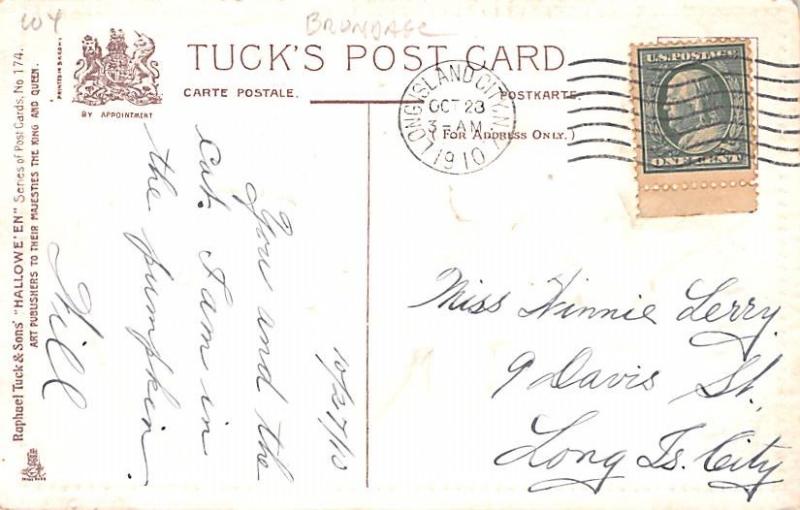 WY
BRUNDAGE
TUCK'S POST CARD
CARTE POSTALE.
POSTKARTE.
(FOR ADDRESS ONLY.)
BY APPOINTMENT
Raphael Tuck & Sons' "HALLOWE'EN" Series of Post Cards, No 174.
ART PUBLISHERS TO THEIR MAJESTIES THE KING AND QUEEN.
LONG ISLAND CITY, N.Y.
OCT 28
3-AM
1910
U.S. POSTAGE
ONE CENT
10/27/10
You and the
cat. I am in
the pumpkin.
Will
Miss Winnie Lerry
9 Davis St.
Long Is. City